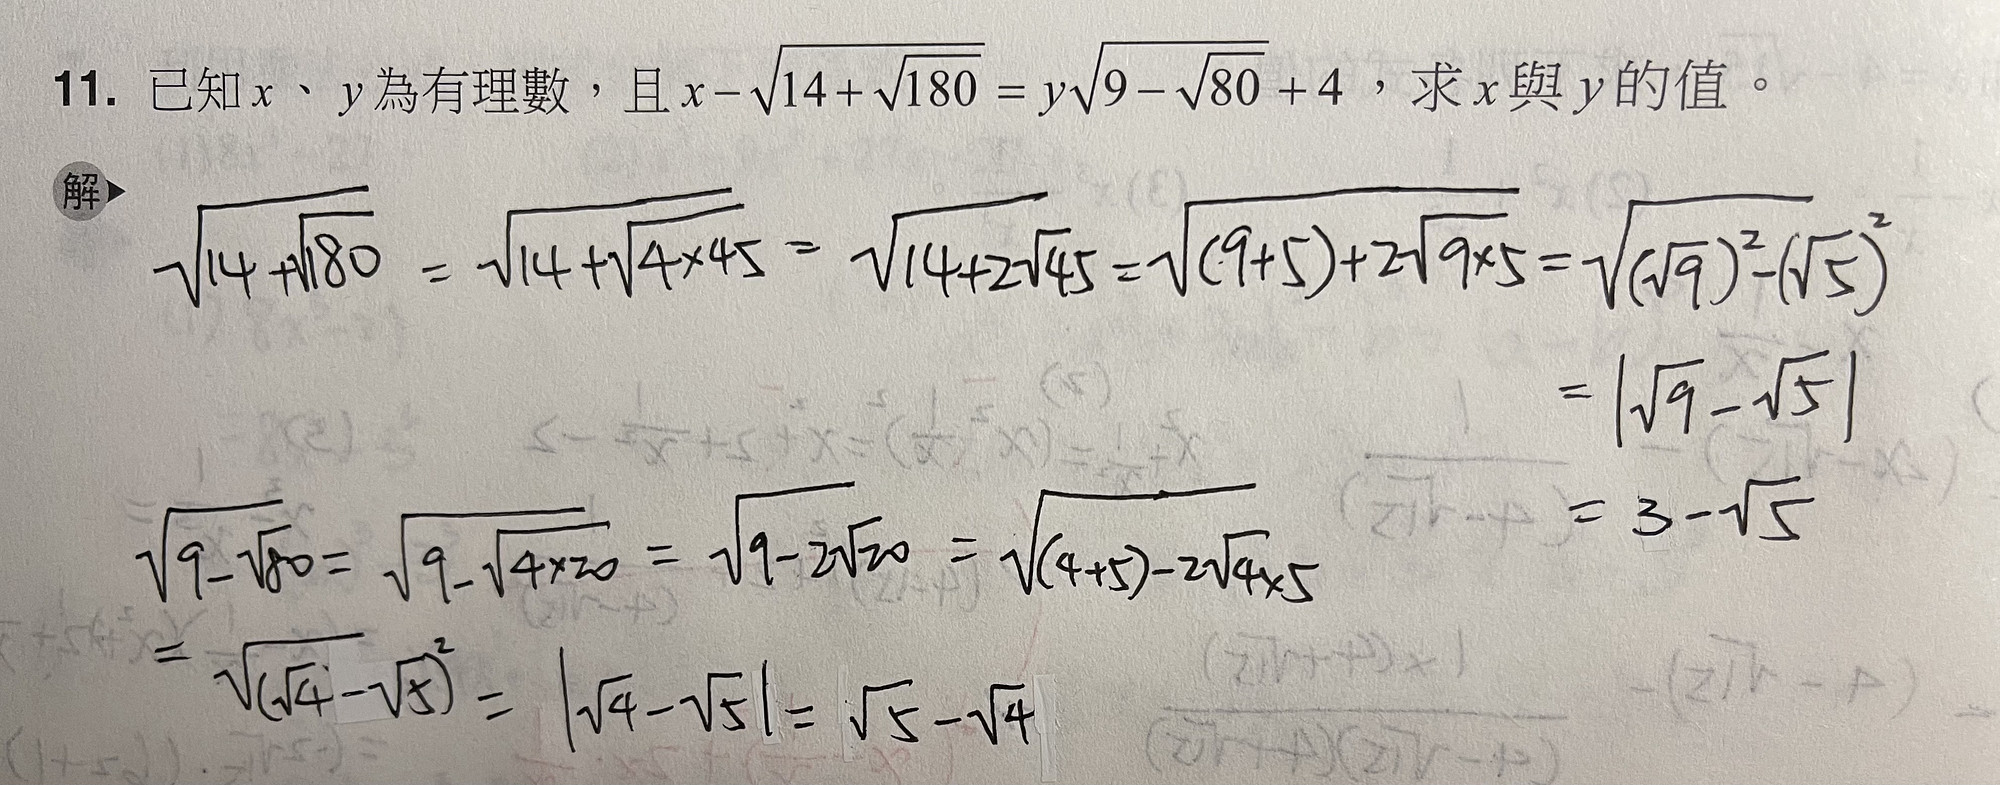 11. 已知 x、y 為有理數，且 x－√(14＋√180) ＝ y√(9－√80) ＋4，求 x 與 y 的值。
解
√(14+√180) = √(14+√(4×45)) = √(14+2√45) = √((9+5)+2√(9×5)) = √((√9)²-(√5)²)
= |√9-√5|
= 3-√5
√(9-√80) = √(9-√(4×20)) = √(9-2√20) = √((4+5)-2√(4×5))
= √((√4-√5)²) = |√4-√5| = √5-√4